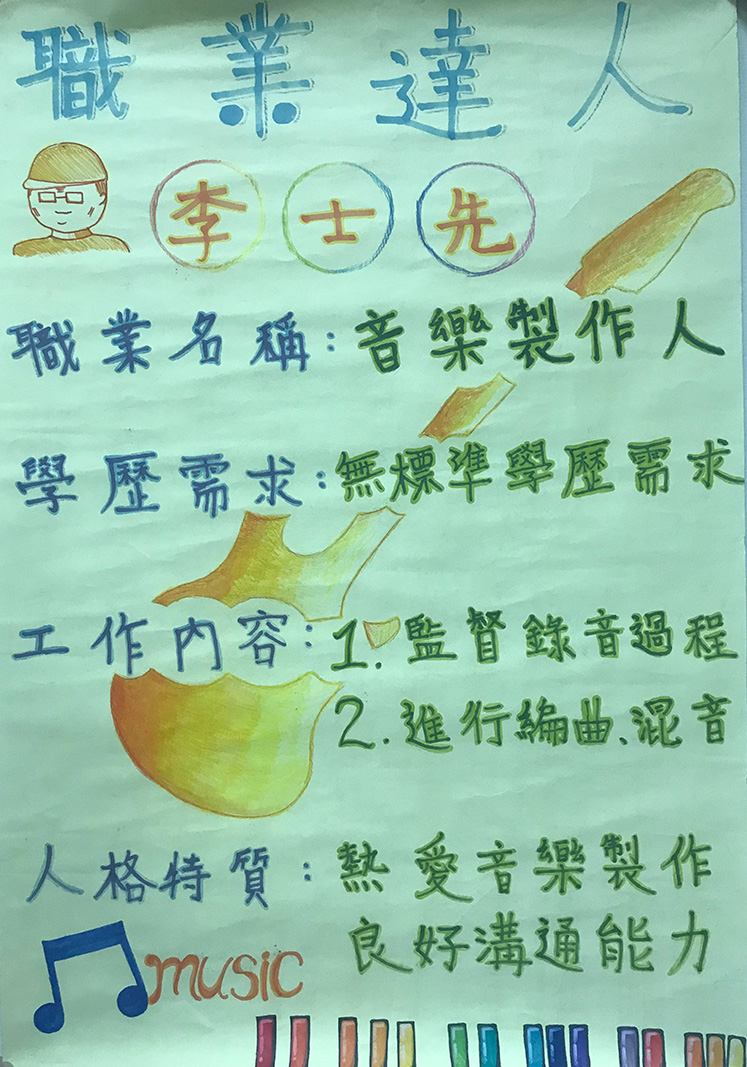 職業達人
李士先
職業名稱:音樂製作人
學歷需求:無標準學歷需求
工作內容:1.監督錄音過程
2.進行編曲、混音
人格特質:熱愛音樂製作
良好溝通能力
music